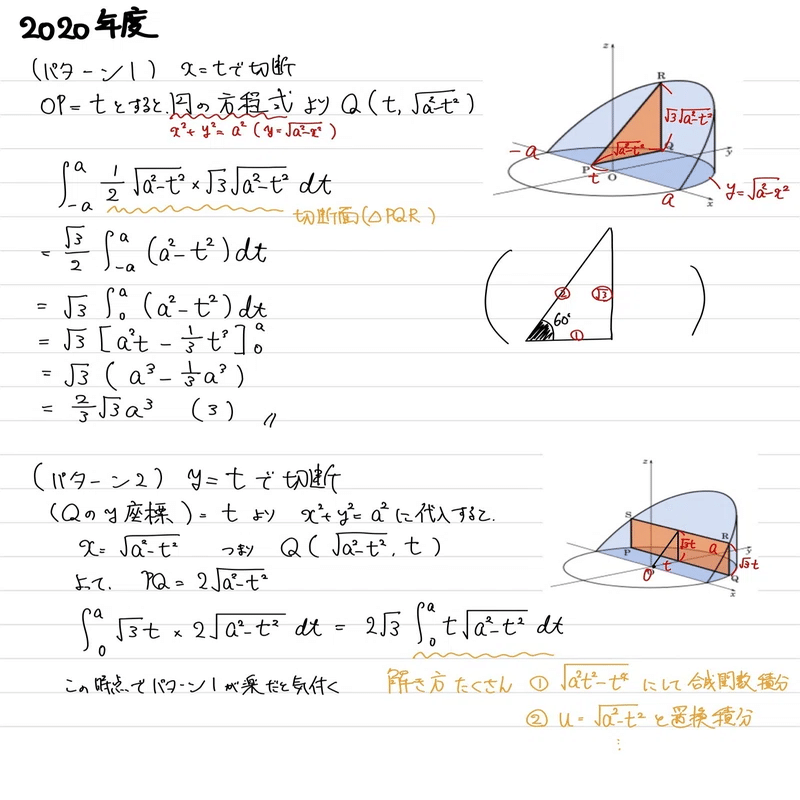 2020年度
(パターン1) x=tで切断
OP=tとすると、円の方程式より Q(t, √a²-t²)
x²+y²=a² (y=√a²-x²)
∫_{-a}^{a} 1/2 √a²-t² × √3√a²-t² dt
切断面(△PQR)
= √3/2 ∫_{-a}^{a} (a²-t²)dt
= √3 ∫_0^a (a²-t²)dt
= √3 [a²t - 1/3 t³]_0^a
= √3 (a³ - 1/3 a³)
= 2/3 √3a³ (3) //
z
R
√3√a²-t²
-a
√a²-t²
Q
y
P
t
O
a
x
y=√a²-x²
( ② √3 60° ① )
(パターン2) y=tで切断
(Qのy座標)=t より x²+y²=a²に代入すると、
x=√a²-t² つまり Q(√a²-t², t)
よって、PQ=2√a²-t²
∫_0^a √3t × 2√a²-t² dt = 2√3 ∫_0^a t√a²-t² dt
この時点でパターン1が楽だと気付く
解き方たくさん ① √a²t²-t⁴ にして合成関数積分
② u=√a²-t² と置換積分
⋮
z
S
R
P
√3t
a
y
O
t
√3t
Q
x